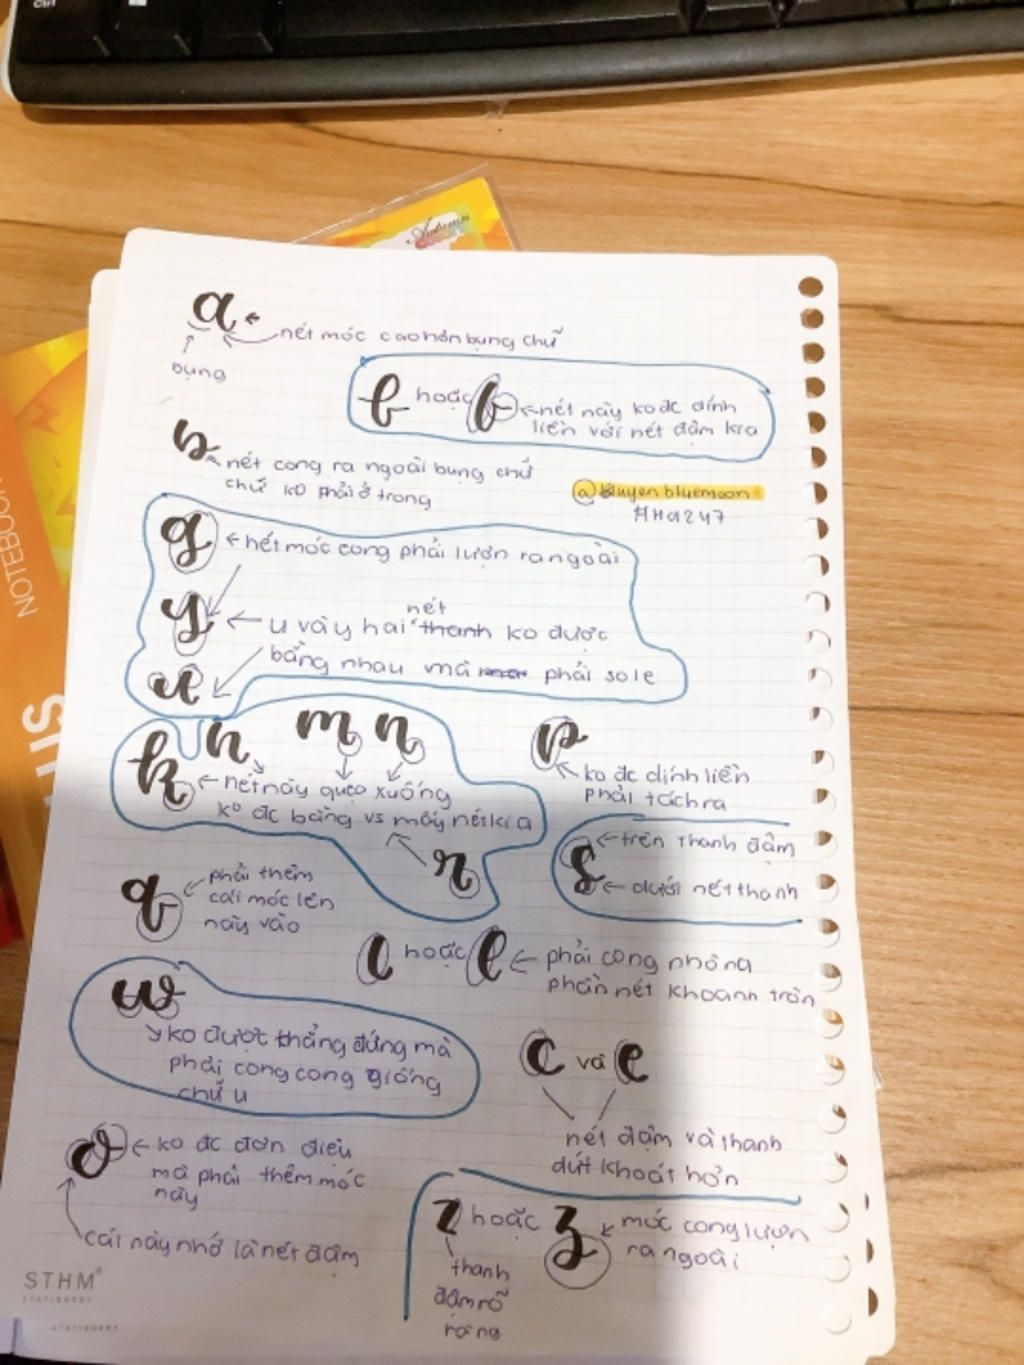 ctrl
Autumn
a ← nét móc cao hơn bụng chữ
bụng
b hoặc b ← nét này ko đc dính
liền với nét đậm kia
s
nét cong ra ngoài bụng chứ
chứ ko phải ở trong
@ Huyenbluemoon
#Ha247
NOTEBOOK
g ← nét móc cong phải lượn ra ngoài
nét
y ← u và y hai thanh ko được
u bằng nhau mà phải sole
k h m n
← nét này quẹo xuống
ko đc bằng vs mấy nét kia
r
p
ko đc dính liền
phải tách ra
s ← trên thanh đậm
← dưới nét thanh
q phải thêm
cái móc lên
này vào
l hoặc l ← phải cong nhông
phần nét khoanh tròn
w
ko được thẳng đứng mà
phải cong cong giống
chữ u
c và e
nét đậm và thanh
dứt khoát hơn
o ← ko đc đơn điệu
mà phải thêm móc
này
cái này nhớ là nét đậm
z hoặc z móc cong lượn
ra ngoài
thanh
đậm rõ
ràng
STHM
STATIONERY
STATIONERY